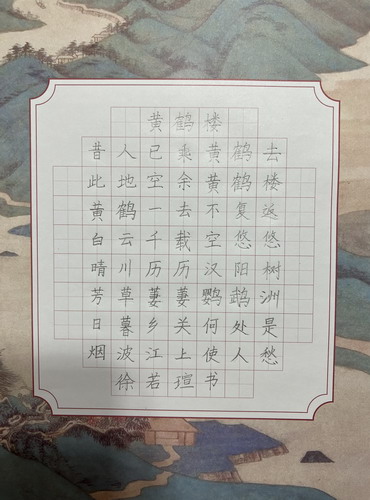 黄鹤楼
昔人已乘黄鹤去
此地空余黄鹤楼
黄鹤一去不复返
白云千载空悠悠
晴川历历汉阳树
芳草萋萋鹦鹉洲
日暮乡关何处是
烟波江上使人愁
徐若瑄书